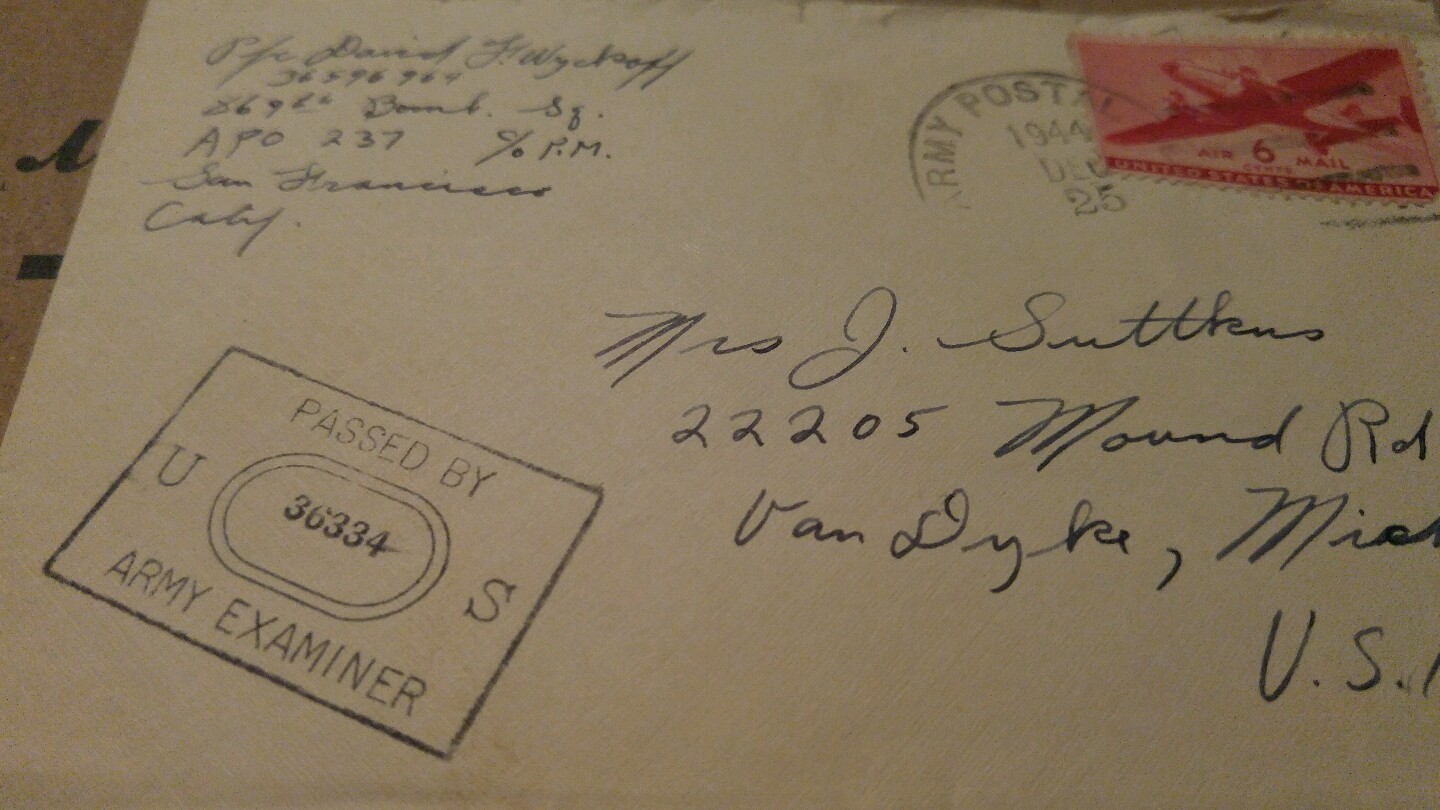 Pfc David F. Wyckoff
36596964
869th Bomb. Sq.
APO 237 c/o P.M.
San Francisco
Calif.
ARMY POSTAL
1944
DEC
25
AIR 6 MAIL
CENTS
UNITED STATES OF AMERICA
Mrs J. Suttkus
22205 Mound Rd
Van Dyke, Mich
U.S.
PASSED BY
U 36334 S
ARMY EXAMINER